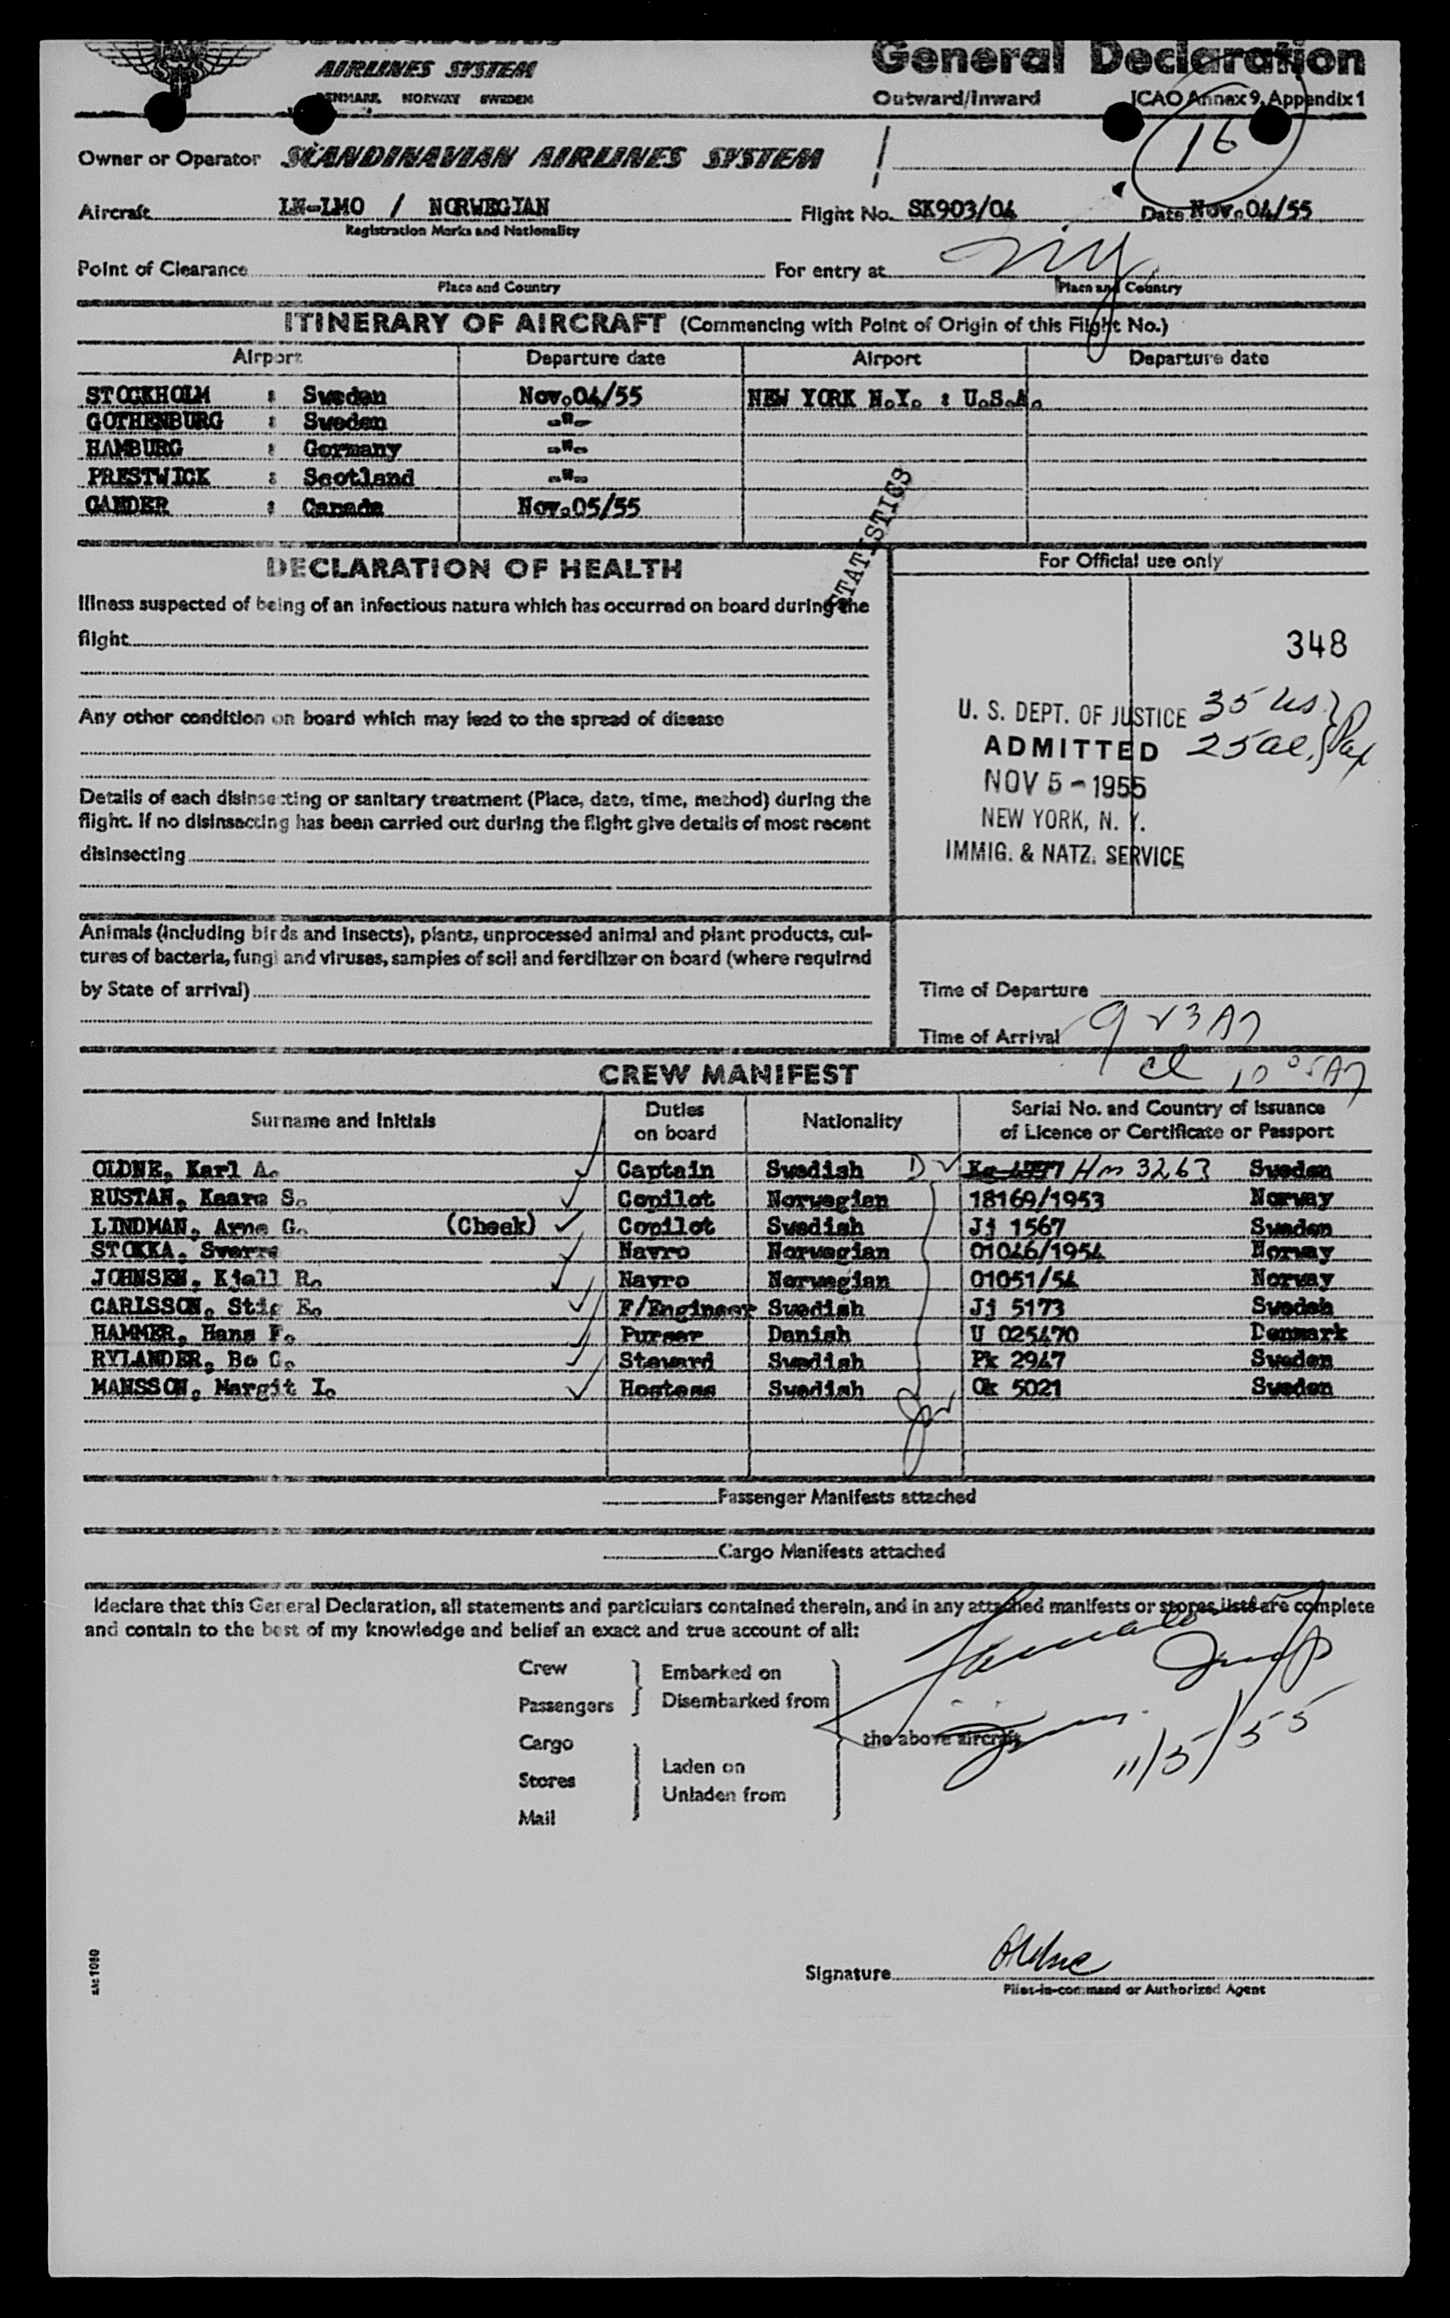 AIRLINES SYSTEM
DENMARK NORWAY SWEDEN
General Declaration
Outward/Inward ICAO Annex 9, Appendix 1
16
Owner or Operator SCANDINAVIAN AIRLINES SYSTEM
Aircraft LN-LMO / NORWEGIAN Flight No. SK903/04 Date Nov.04/55
Registration Marks and Nationality
Point of Clearance For entry at NY
Place and Country Place and Country
ITINERARY OF AIRCRAFT (Commencing with Point of Origin of this Flight No.)
Airport Departure date Airport Departure date
STOCKHOLM : Sweden Nov.04/55 NEW YORK N.Y. : U.S.A.
GOTHENBURG : Sweden -"-
HAMBURG : Germany -"-
PRESTWICK : Scotland -"-
GANDER : Canada Nov.05/55
STATISTICS
DECLARATION OF HEALTH
Illness suspected of being of an infectious nature which has occurred on board during the
flight
Any other condition on board which may lead to the spread of disease
Details of each disinsecting or sanitary treatment (Place, date, time, method) during the
flight. If no disinsecting has been carried out during the flight give details of most recent
disinsecting
Animals (including birds and insects), plants, unprocessed animal and plant products, cul-
tures of bacteria, fungi and viruses, samples of soil and fertilizer on board (where required
by State of arrival)
For Official use only
348
U. S. DEPT. OF JUSTICE 35 us }
ADMITTED 25 al. } Pax
NOV 5 - 1955
NEW YORK, N. Y.
IMMIG. & NATZ. SERVICE
Time of Departure
Time of Arrival 923 A
cl 10 05 A
CREW MANIFEST
Surname and Initials Duties on board Nationality Serial No. and Country of Issuance of Licence or Certificate or Passport
OLDNE, Karl A. Captain Swedish D Hm 3263 Sweden
RUSTAN, Kaare S. Copilot Norwegian 18169/1953 Norway
LINDMAN, Arne G. (Check) Copilot Swedish Jj 1567 Sweden
STOKKA, Sverre Navro Norwegian 01046/1954 Norway
JOHNSEN, Kjell R. Navro Norwegian 01051/54 Norway
CARLSSON, Stig E. F/Engineer Swedish Jj 5173 Sweden
HAMMER, Hans F. Purser Danish U 025470 Denmark
RYLANDER, Bo C. Steward Swedish Pk 2947 Sweden
MANSSON, Margit I. Hostess Swedish Ok 5021 Sweden
Passenger Manifests attached
Cargo Manifests attached
I declare that this General Declaration, all statements and particulars contained therein, and in any attached manifests or stores lists are complete
and contain to the best of my knowledge and belief an exact and true account of all:
Crew Embarked on
Passengers Disembarked from
Cargo the above aircraft
Stores Laden on
Unladen from
Mail
11/5/55
Signature Oldne
Pilot-in-command or Authorized Agent